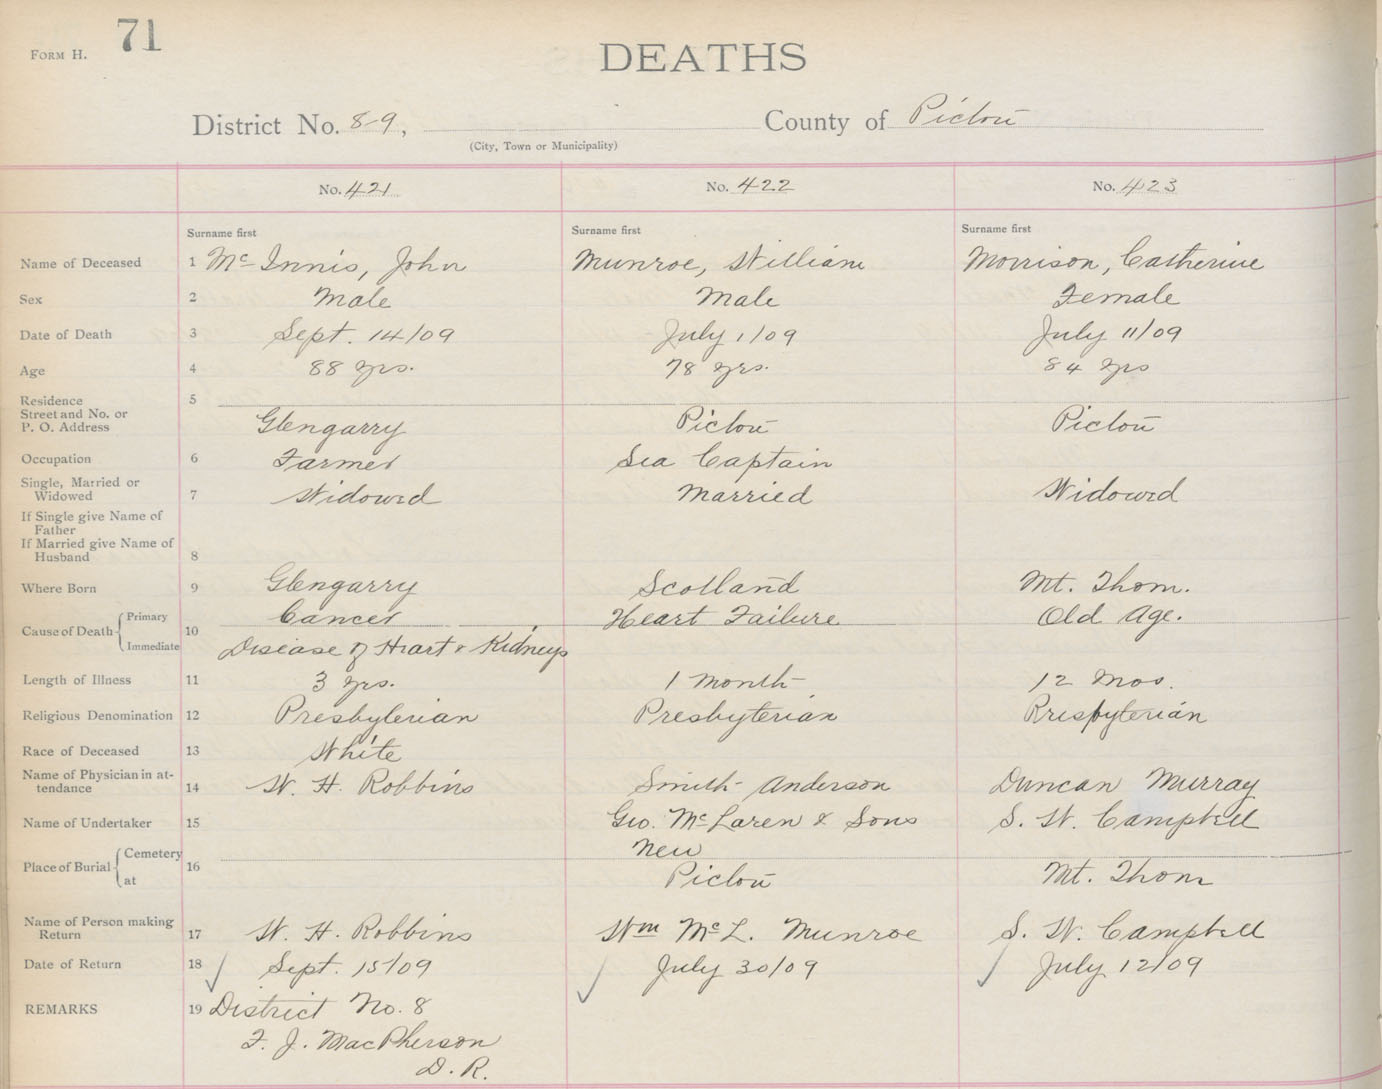 71
FORM H.
DEATHS
District No. 8-9, County of Pictou
(City, Town or Municipality)
No. 421 No. 422 No. 423
Surname first Surname first Surname first
Name of Deceased 1 Mc Innis, John Munroe, William Morrison, Catherine
Sex 2 Male Male Female
Date of Death 3 Sept. 14/09 July 1/09 July 11/09
Age 4 88 yrs. 78 yrs. 84 yrs
Residence 5
Street and No. or
P. O. Address Glengarry Pictou Pictou
Occupation 6 Farmer Sea Captain
Single, Married or
Widowed 7 Widowed Married Widowed
If Single give Name of
Father
If Married give Name of
Husband 8
Where Born 9 Glengarry Scotland Mt. Thom.
Cause of Death Primary 10 Cancer Heart Failure Old Age.
Immediate Disease of Heart & Kidneys
Length of Illness 11 3 yrs. 1 month 12 Mos.
Religious Denomination 12 Presbyterian Presbyterian Presbyterian
Race of Deceased 13 White
Name of Physician in at-
tendance 14 W. H. Robbins Smith Anderson Duncan Murray
Name of Undertaker 15 Geo. McLaren & Sons S. W. Campbell
Place of Burial Cemetery 16 New
at Pictou Mt. Thom
Name of Person making
Return 17 W. H. Robbins Wm McL. Munroe S. W. Campbell
Date of Return 18 Sept. 15/09 July 30/09 July 12/09
REMARKS 19 District No. 8
F. J. MacPherson
D. R.